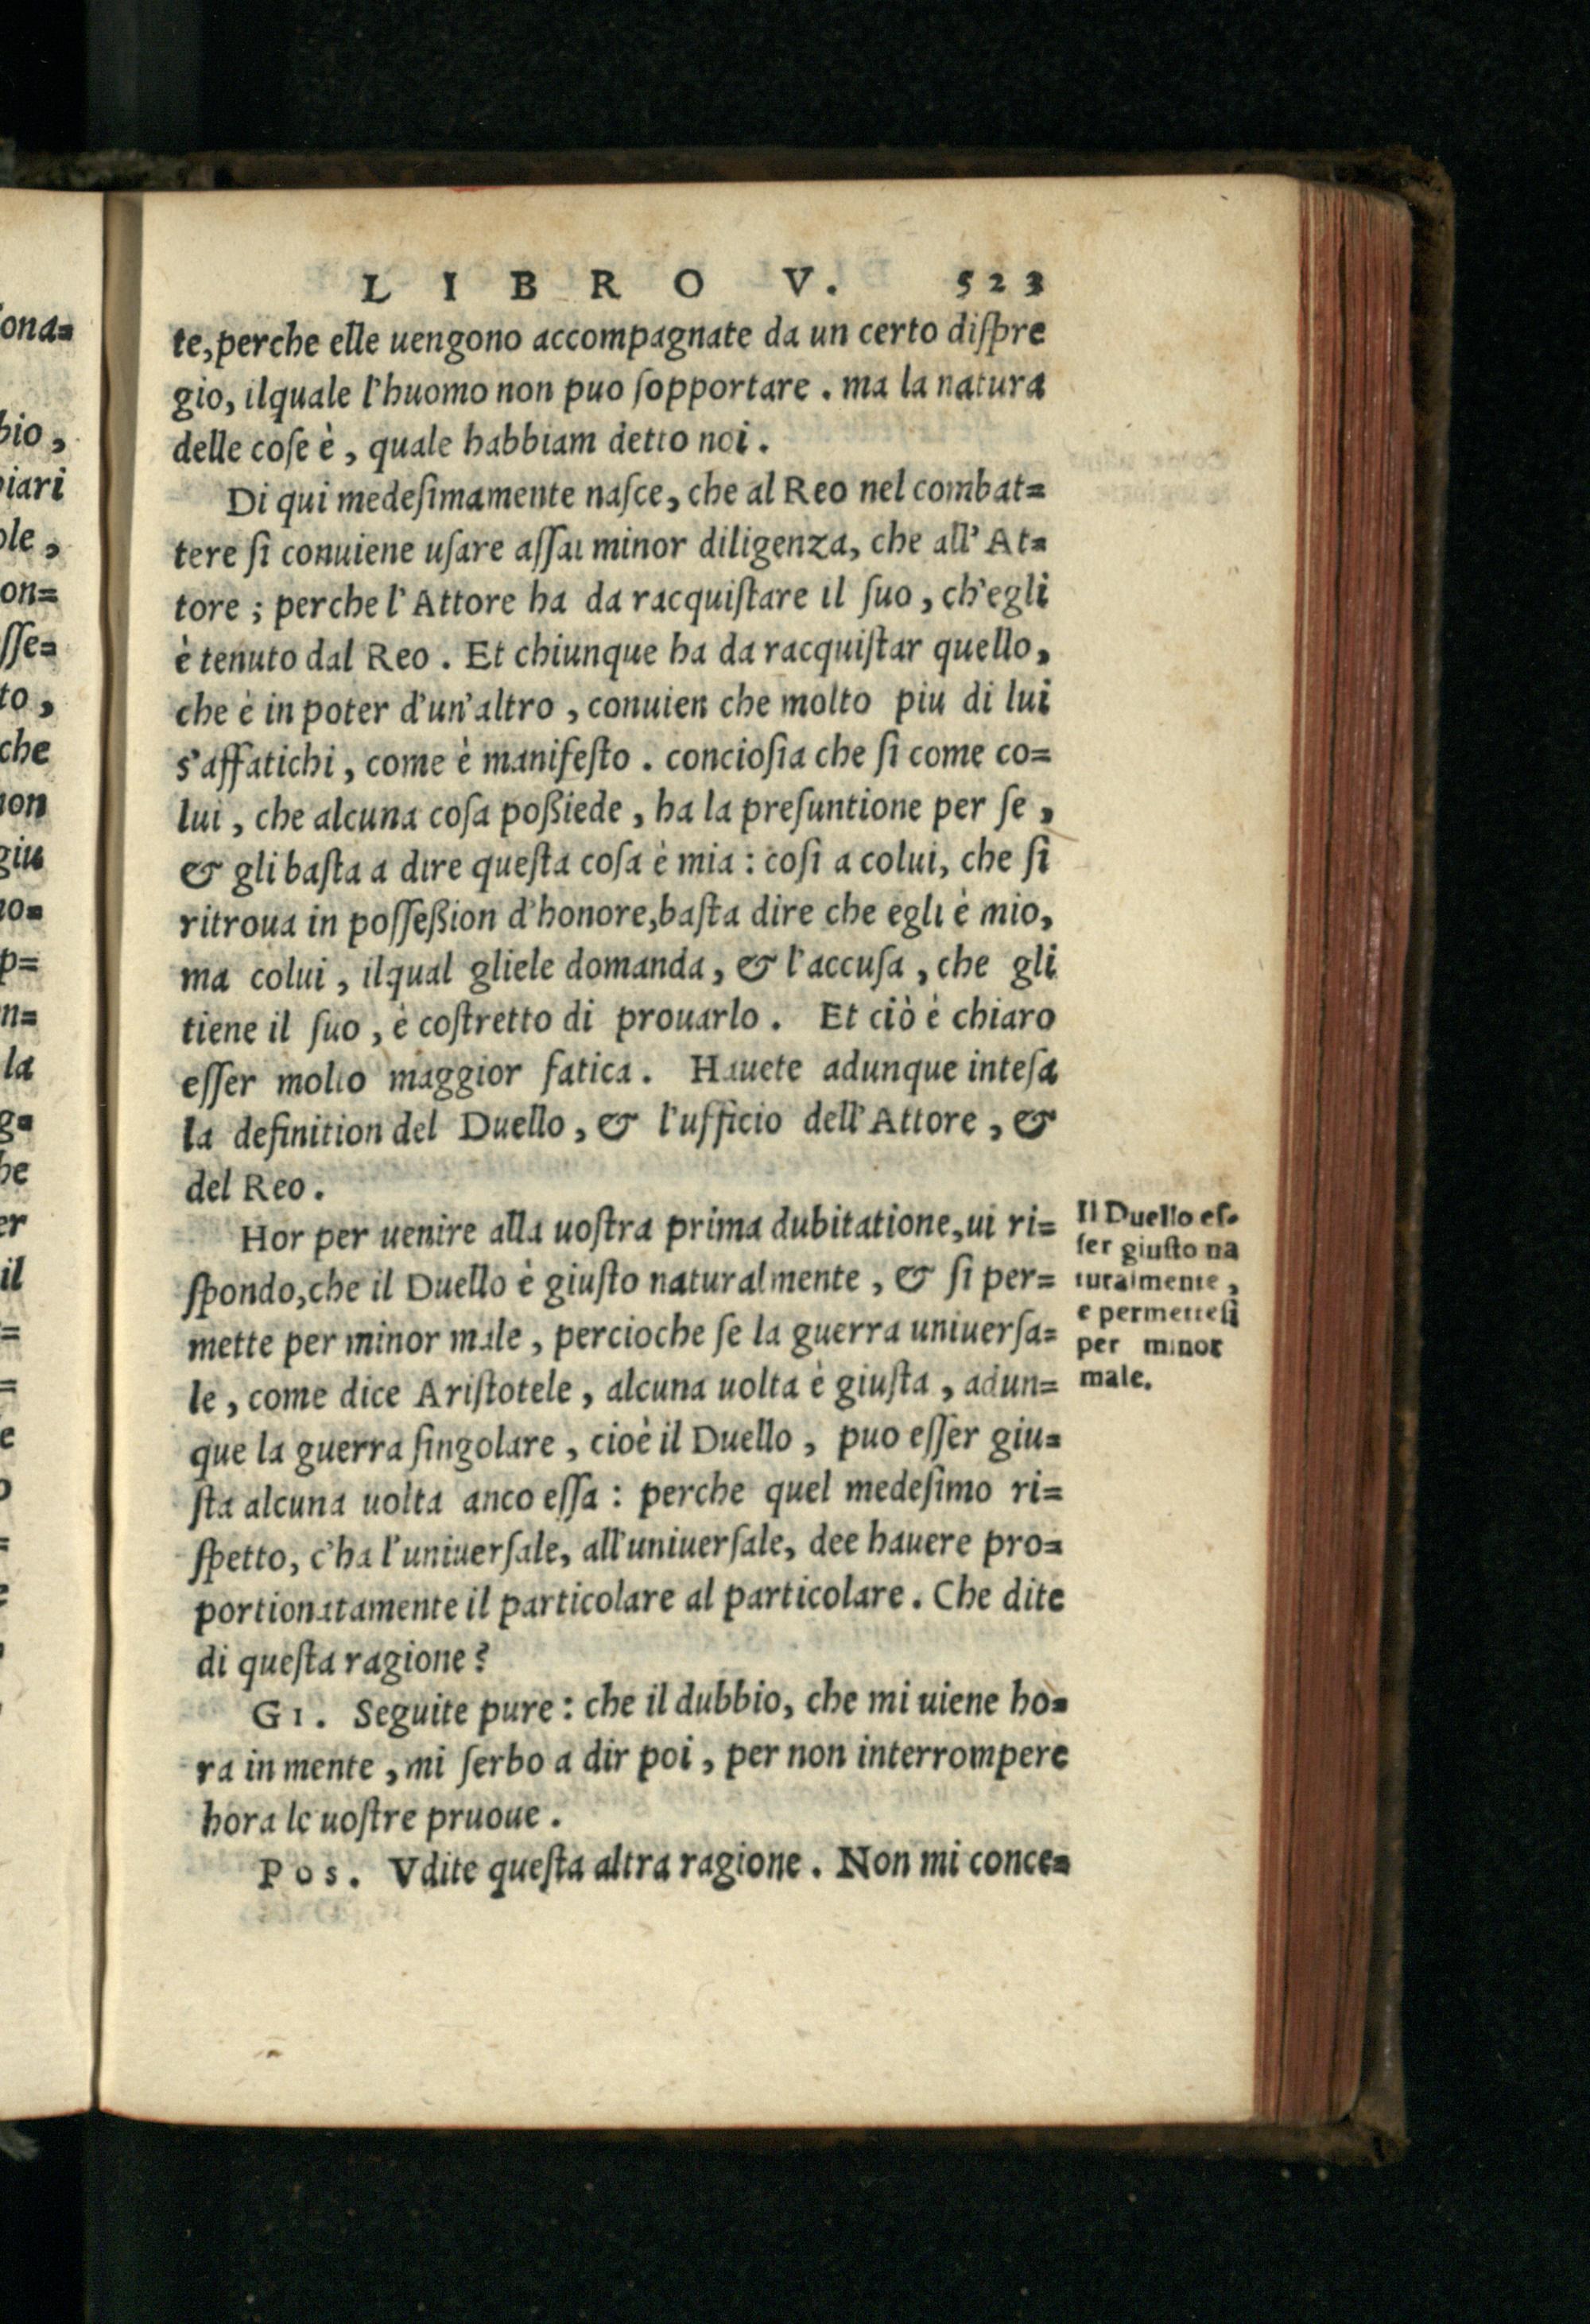 LIBRO V. 523
te, perche elle uengono accompagnate da un certo diſpre
gio, ilquale l'huomo non puo ſopportare. ma la natura
delle coſe è, quale habbiam detto noi.
Di qui medeſimamente naſce, che al Reo nel combat=
tere ſi conuiene uſare aſſai minor diligenza, che all'At=
tore; perche l'Attore ha da racquiſtare il ſuo, ch'egli
è tenuto dal Reo. Et chiunque ha da racquiſtar quello,
che è in poter d'un'altro, conuien che molto piu di lui
s'affatichi, come è manifeſto. concioſia che ſi come co=
lui, che alcuna coſa poßiede, ha la preſuntione per ſe,
& gli baſta a dire queſta coſa è mia: coſi a colui, che ſi
ritroua in poſſeßion d'honore, baſta dire che egli è mio,
ma colui, ilqual gliele domanda, & l'accuſa, che gli
tiene il ſuo, è coſtretto di prouarlo. Et ciò è chiaro
eſſer molto maggior fatica. Hauete adunque inteſa
la definition del Duello, & l'ufficio dell'Attore, &
del Reo.
Hor per uenire alla uoſtra prima dubitatione, ui ri=
ſpondo, che il Duello è giuſto naturalmente, & ſi per=
mette per minor male, percioche ſe la guerra uniuerſa=
le, come dice Ariſtotele, alcuna uolta è giuſta, adun=
que la guerra ſingolare, cioè il Duello, puo eſſer giu=
ſta alcuna uolta anco eſſa: perche quel medeſimo ri=
ſpetto, c'ha l'uniuerſale, all'uniuerſale, dee hauere pro=
portionatamente il particolare al particolare. Che dite
di queſta ragione?
GI. Seguite pure: che il dubbio, che mi uiene ho=
ra in mente, mi ſerbo a dir poi, per non interrompere
hora le uoſtre pruoue.
POS. Vdite queſta altra ragione. Non mi conce=
Il Duello eſ-
ſer giuſto na
turalmente,
e permetteſi
per minor
male.
ona=
bio,
iari
ole,
on=
ſſe=
to,
che
non
giu
no=
p=
n=
la
g=
he
er
il